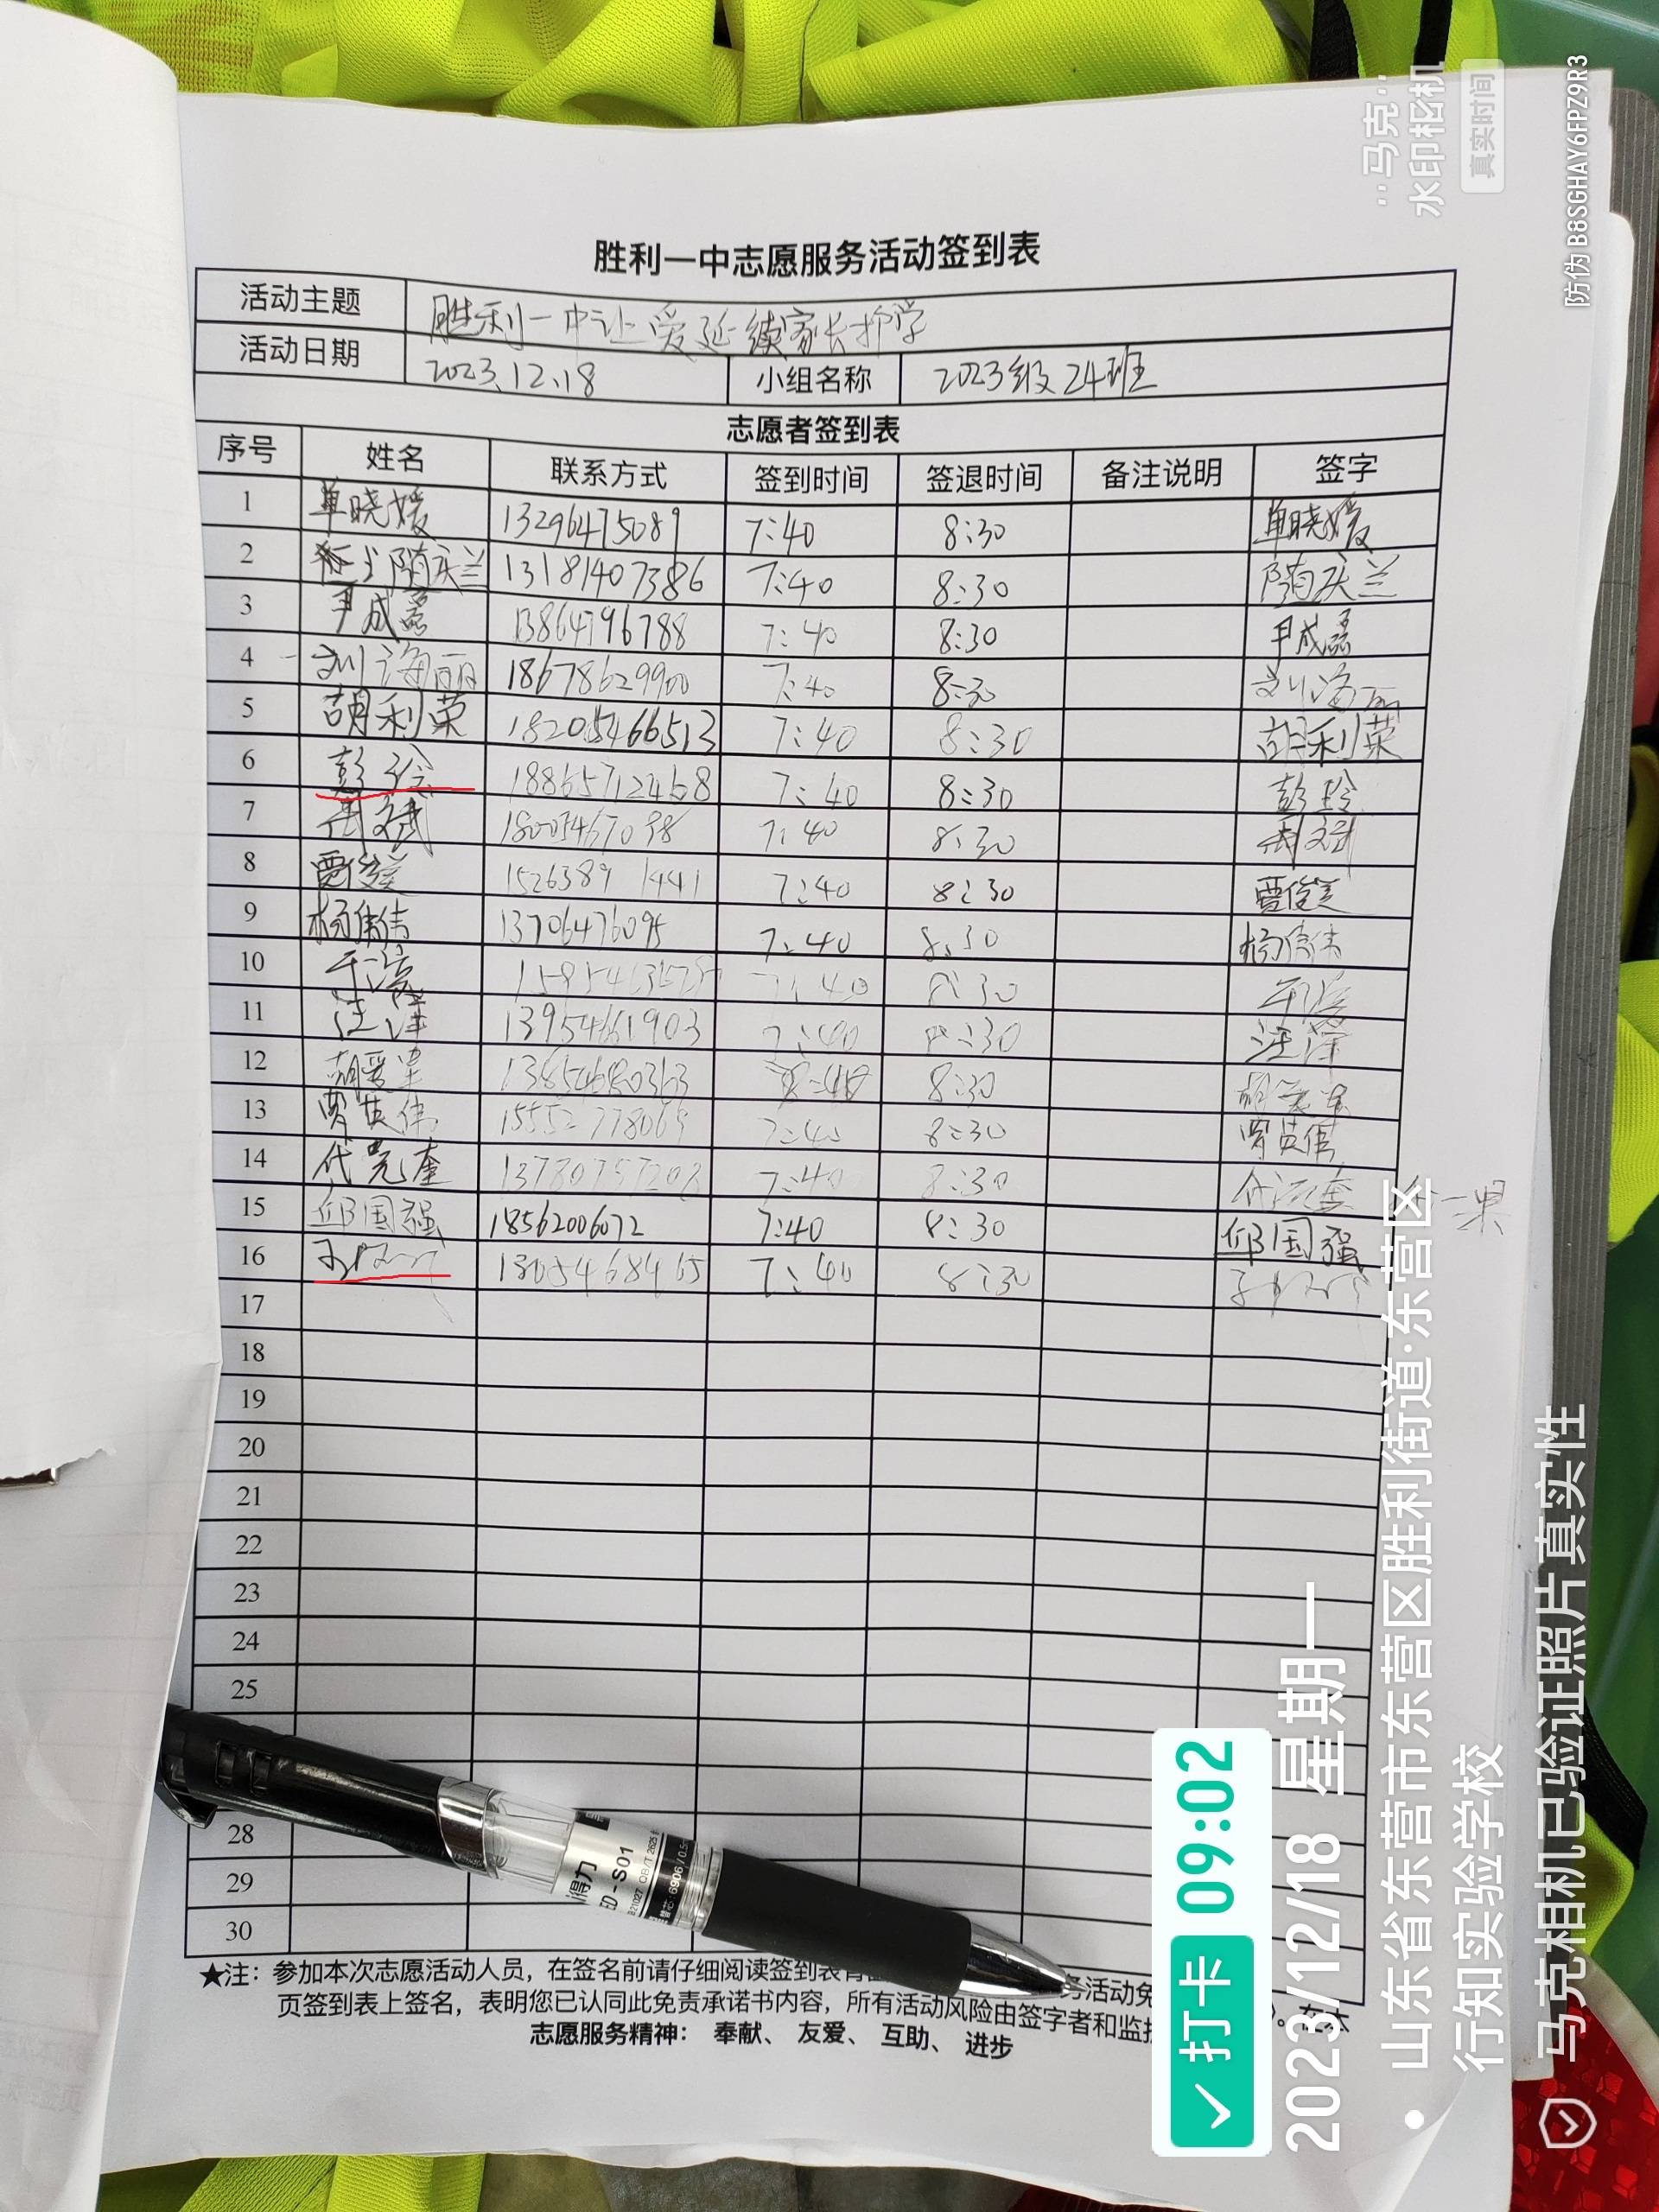 胜利一中志愿服务活动签到表
活动主题 胜利一中让爱延续家长护学
活动日期 2023.12.18 小组名称 2023级24班
志愿者签到表
序号 姓名 联系方式 签到时间 签退时间 备注说明 签字
1 单晓媛 13296475089 7:40 8:30 单晓媛
2 隋庆兰 13181407386 7:40 8:30 隋庆兰
3 尹成磊 13864796788 7:40 8:30 尹成磊
4 刘海丽 18678629900 7:40 8:30 刘海丽
5 胡利荣 18205466513 7:40 8:30 胡利荣
6 彭玲 18865712468 7:40 8:30 彭玲
7 7:40 8:30
8 贾俊美 15263891441 7:40 8:30 贾俊美
9 杨倩倩 13706476095 7:40 8:30 杨倩倩
10 7:40 8:30
11 汪洋 13954661903 7:40 8:30 汪洋
12 8:30
13 贾英伟 7:40 8:30 贾英伟
14 7:40 8:30
15 邱国强 18562006072 7:40 8:30 邱国强
16 18054684165 7:40 8:30
17
18
19
20
21
22
23
24
25
28
29
30
★注：参加本次志愿活动人员，在签名前请仔细阅读签到表背 务活动免 在本
页签到表上签名，表明您已认同此免责承诺书内容，所有活动风险由签字者和监护
志愿服务精神： 奉献、 友爱、 互助、 进步
得力
ED-S01
"马克"
水印相机
真实时间
防伪 B8SGHAY6FPZ9R3
打卡 09:02
2023/12/18 星期一
山东省东营市东营区胜利街道·东营区
行知实验学校
马克相机已验证照片真实性